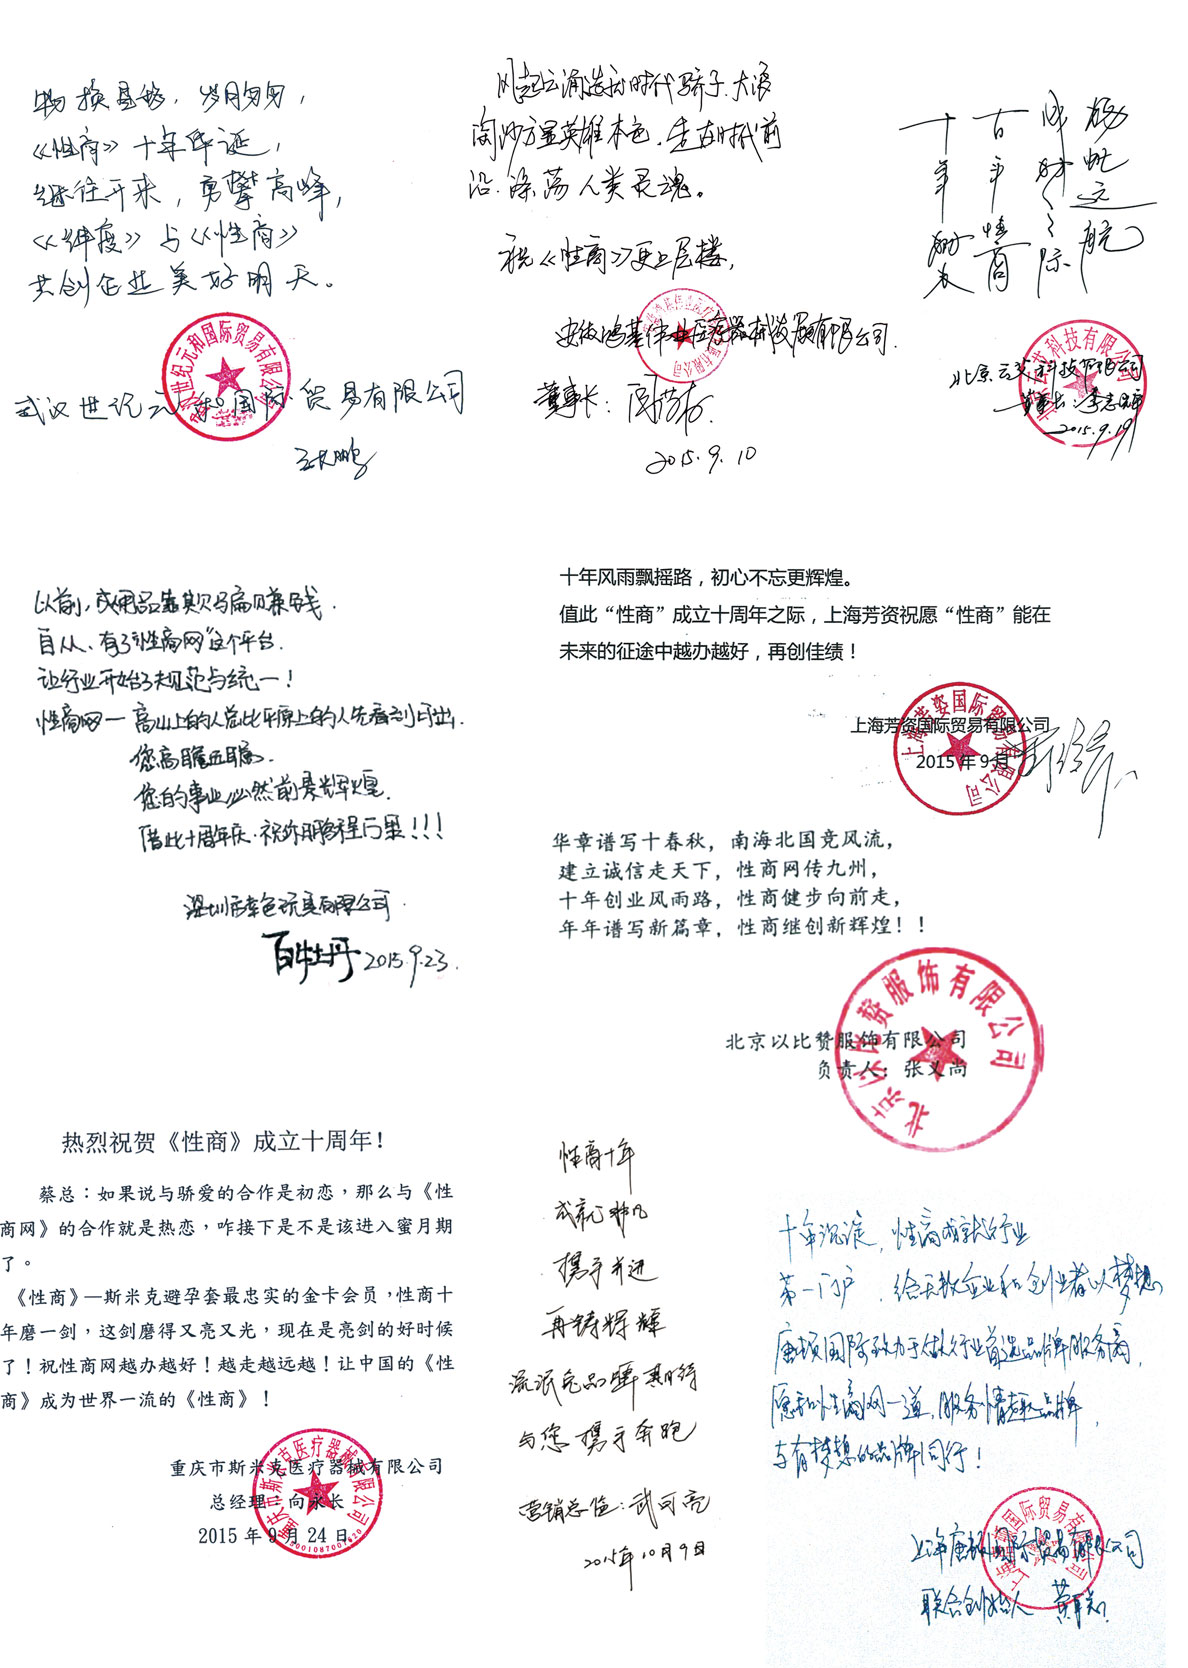 物换星移，岁月匆匆，
《性商》十年华诞，
继往开来，勇攀高峰，
《纬度》与《性商》
共创企业美好明天。
武汉世纪元和国际贸易有限公司
风起云涌造就时代骄子.大浪
淘沙方显英雄本色.走在时代前
沿.涤荡人类灵魂。
祝《性商》更上层楼，
安徽鸿基伟业医疗器械发展有限公司
董事长：
2015.9.10
扬帆远航
成功之际
百年性商
十年
北京云艾科技有限公司
2015.9.19
以前，成用品靠欺骗赚钱.
自从.有了“性商网”这个平台.
让行业开始了规范与统一！
性商网—高山上的人总比平原上的人先看到日出.
您高瞻远瞩.
您的事业必然前景辉煌.
借此十周年庆.祝你鹏程万里！！！
深圳市幸色玩具有限公司.
百牡丹 2015.9.23.
十年风雨飘摇路，初心不忘更辉煌。
值此“性商”成立十周年之际，上海芳资祝愿“性商”能在
未来的征途中越办越好，再创佳绩！
上海芳资国际贸易有限公司
2015年9月
华章谱写十春秋，南海北国竞风流，
建立诚信走天下，性商网传九州，
十年创业风雨路，性商健步向前走，
年年谱写新篇章，性商继创新辉煌！！
北京以比赞服饰有限公司
负责人：张义尚
热烈祝贺《性商》成立十周年！
蔡总：如果说与骄爱的合作是初恋，那么与《性
商网》的合作就是热恋，咋接下是不是该进入蜜月期
了。
《性商》—斯米克避孕套最忠实的金卡会员，性商十
年磨一剑，这剑磨得又亮又光，现在是亮剑的好时候
了！祝性商网越办越好！越走越远越！让中国的《性
商》成为世界一流的《性商》！
重庆市斯米克医疗器械有限公司
总经理：向永长
2015年9月24日
性商十年
成就非凡
携手并进
再铸辉煌
流氓兔品牌期待
与您携手奔跑
营销总监：武可亮
2015年10月9日
十年沉淀，性商成就行业
第一门户.给无数企业和创业者以梦想
唐顿国际致力于做行业首选品牌服务商，
愿和性商网一道，服务情趣品牌，
与有梦想的品牌同行！
上海唐顿国际贸易有限公司
联合创始人